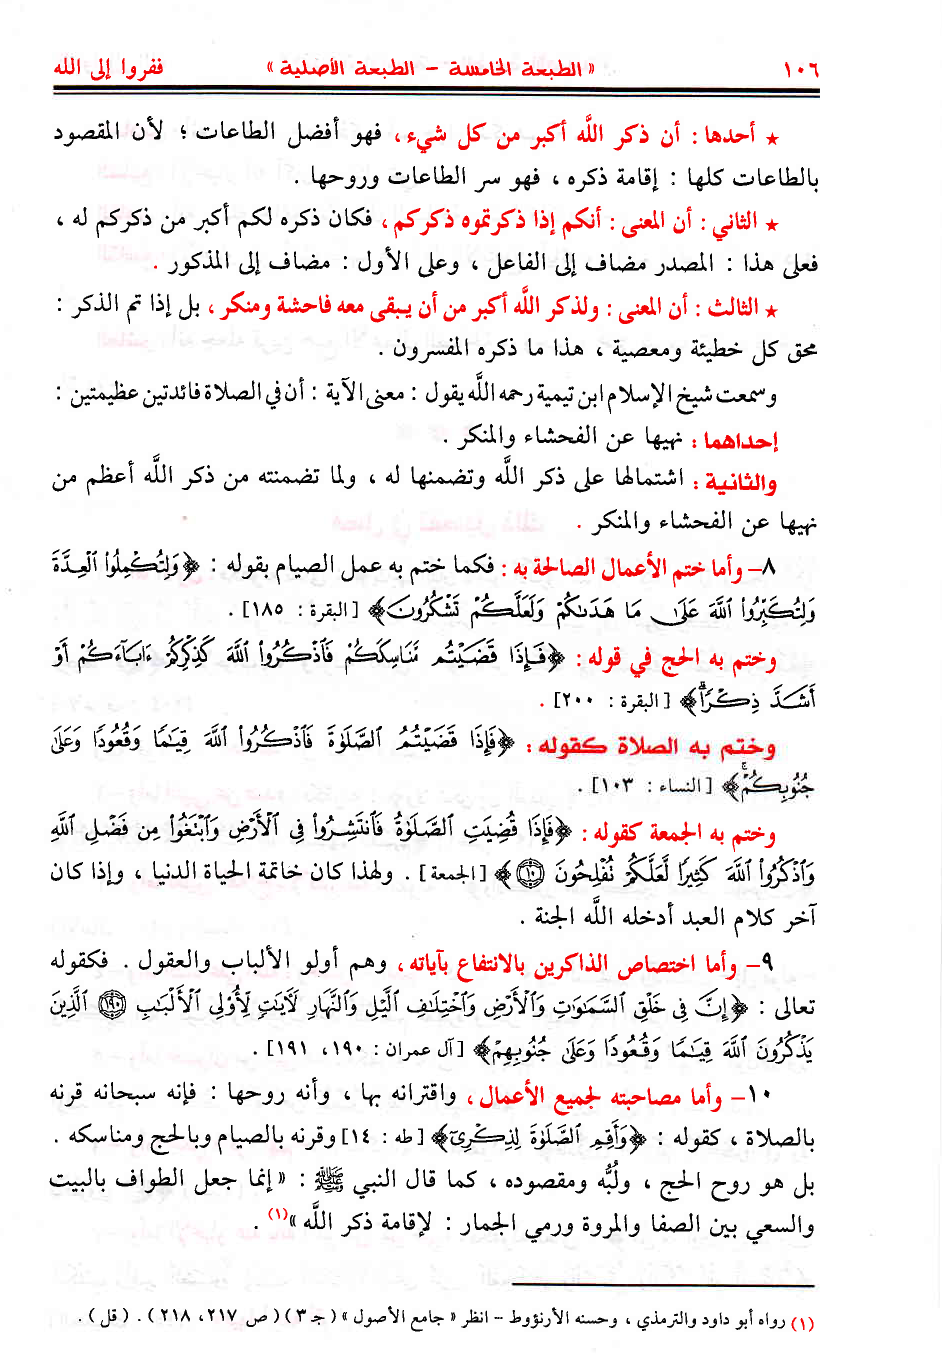 ١٠٦ « الطبعة الخامسة – الطبعة الأصلية » ففروا إلى الله
★ أحدها : أن ذكر الله أكبر من كل شيء ، فهو أفضل الطاعات ؛ لأن المقصود
بالطاعات كلها : إقامة ذكره ، فهو سر الطاعات وروحها .
★ الثاني : أن المعنى : أنكم إذا ذكرتموه ذكركم ، فكان ذكره لكم أكبر من ذكركم له ،
فعلى هذا : المصدر مضاف إلى الفاعل ، وعلى الأول : مضاف إلى المذكور .
★ الثالث : أن المعنى : ولذكر الله أكبر من أن يبقى معه فاحشة ومنكر ، بل إذا تم الذكر :
محق كل خطيئة ومعصية ، هذا ما ذكره المفسرون .
وسمعت شيخ الإسلام ابن تيمية رحمه الله يقول : معنى الآية : أن في الصلاة فائدتين عظيمتين :
إحداهما : نهيها عن الفحشاء والمنكر .
والثانية : اشتمالها على ذكر الله وتضمنها له ، ولما تضمنته من ذكر الله أعظم من
نهيها عن الفحشاء والمنكر .
٨– وأما ختم الأعمال الصالحة به : فكما ختم به عمل الصيام بقوله : ﴿وَلِتُكْمِلُوا۟ ٱلْعِدَّةَ
وَلِتُكَبِّرُوا۟ ٱللَّهَ عَلَىٰ مَا هَدَىٰكُمْ وَلَعَلَّكُمْ تَشْكُرُونَ﴾ [البقرة : ١٨٥] .
وختم به الحج في قوله : ﴿فَإِذَا قَضَيْتُم مَّنَاسِكَكُمْ فَٱذْكُرُوا۟ ٱللَّهَ كَذِكْرِكُمْ ءَابَآءَكُمْ أَوْ
أَشَدَّ ذِكْرًۭا ۗ﴾ [البقرة : ٢٠٠] .
وختم به الصلاة كقوله : ﴿فَإِذَا قَضَيْتُمُ ٱلصَّلَوٰةَ فَٱذْكُرُوا۟ ٱللَّهَ قِيَـٰمًۭا وَقُعُودًۭا وَعَلَىٰ
جُنُوبِكُمْ ۚ﴾ [النساء : ١٠٣] .
وختم به الجمعة كقوله : ﴿فَإِذَا قُضِيَتِ ٱلصَّلَوٰةُ فَٱنتَشِرُوا۟ فِى ٱلْأَرْضِ وَٱبْتَغُوا۟ مِن فَضْلِ ٱللَّهِ
وَٱذْكُرُوا۟ ٱللَّهَ كَثِيرًۭا لَّعَلَّكُمْ تُفْلِحُونَ ۝١٠﴾ [الجمعة] . ولهذا كان خاتمة الحياة الدنيا ، وإذا كان
آخر كلام العبد أدخله الله الجنة .
٩– وأما اختصاص الذاكرين بالانتفاع بآياته ، وهم أولو الألباب والعقول . فكقوله
تعالى : ﴿إِنَّ فِى خَلْقِ ٱلسَّمَـٰوَٰتِ وَٱلْأَرْضِ وَٱخْتِلَـٰفِ ٱلَّيْلِ وَٱلنَّهَارِ لَـَٔايَـٰتٍۢ لِّأُو۟لِى ٱلْأَلْبَـٰبِ ۝١٩٠ ٱلَّذِينَ
يَذْكُرُونَ ٱللَّهَ قِيَـٰمًۭا وَقُعُودًۭا وَعَلَىٰ جُنُوبِهِمْ﴾ [آل عمران : ١٩٠، ١٩١] .
١٠– وأما مصاحبته لجميع الأعمال ، واقترانه بها ، وأنه روحها : فإنه سبحانه قرنه
بالصلاة ، كقوله : ﴿وَأَقِمِ ٱلصَّلَوٰةَ لِذِكْرِىٓ﴾ [طه : ١٤] وقرنه بالصيام وبالحج ومناسكه .
بل هو روح الحج ، ولُبُّه ومقصوده ، كما قال النبي ﷺ : « إنما جعل الطواف بالبيت
والسعي بين الصفا والمروة ورمي الجمار : لإقامة ذكر الله »(١) .
(١) رواه أبو داود والترمذي ، وحسنه الأرنؤوط – انظر « جامع الأصول » ( جـ ٣) ( ص ٢١٧، ٢١٨ ) . ( قل ) .